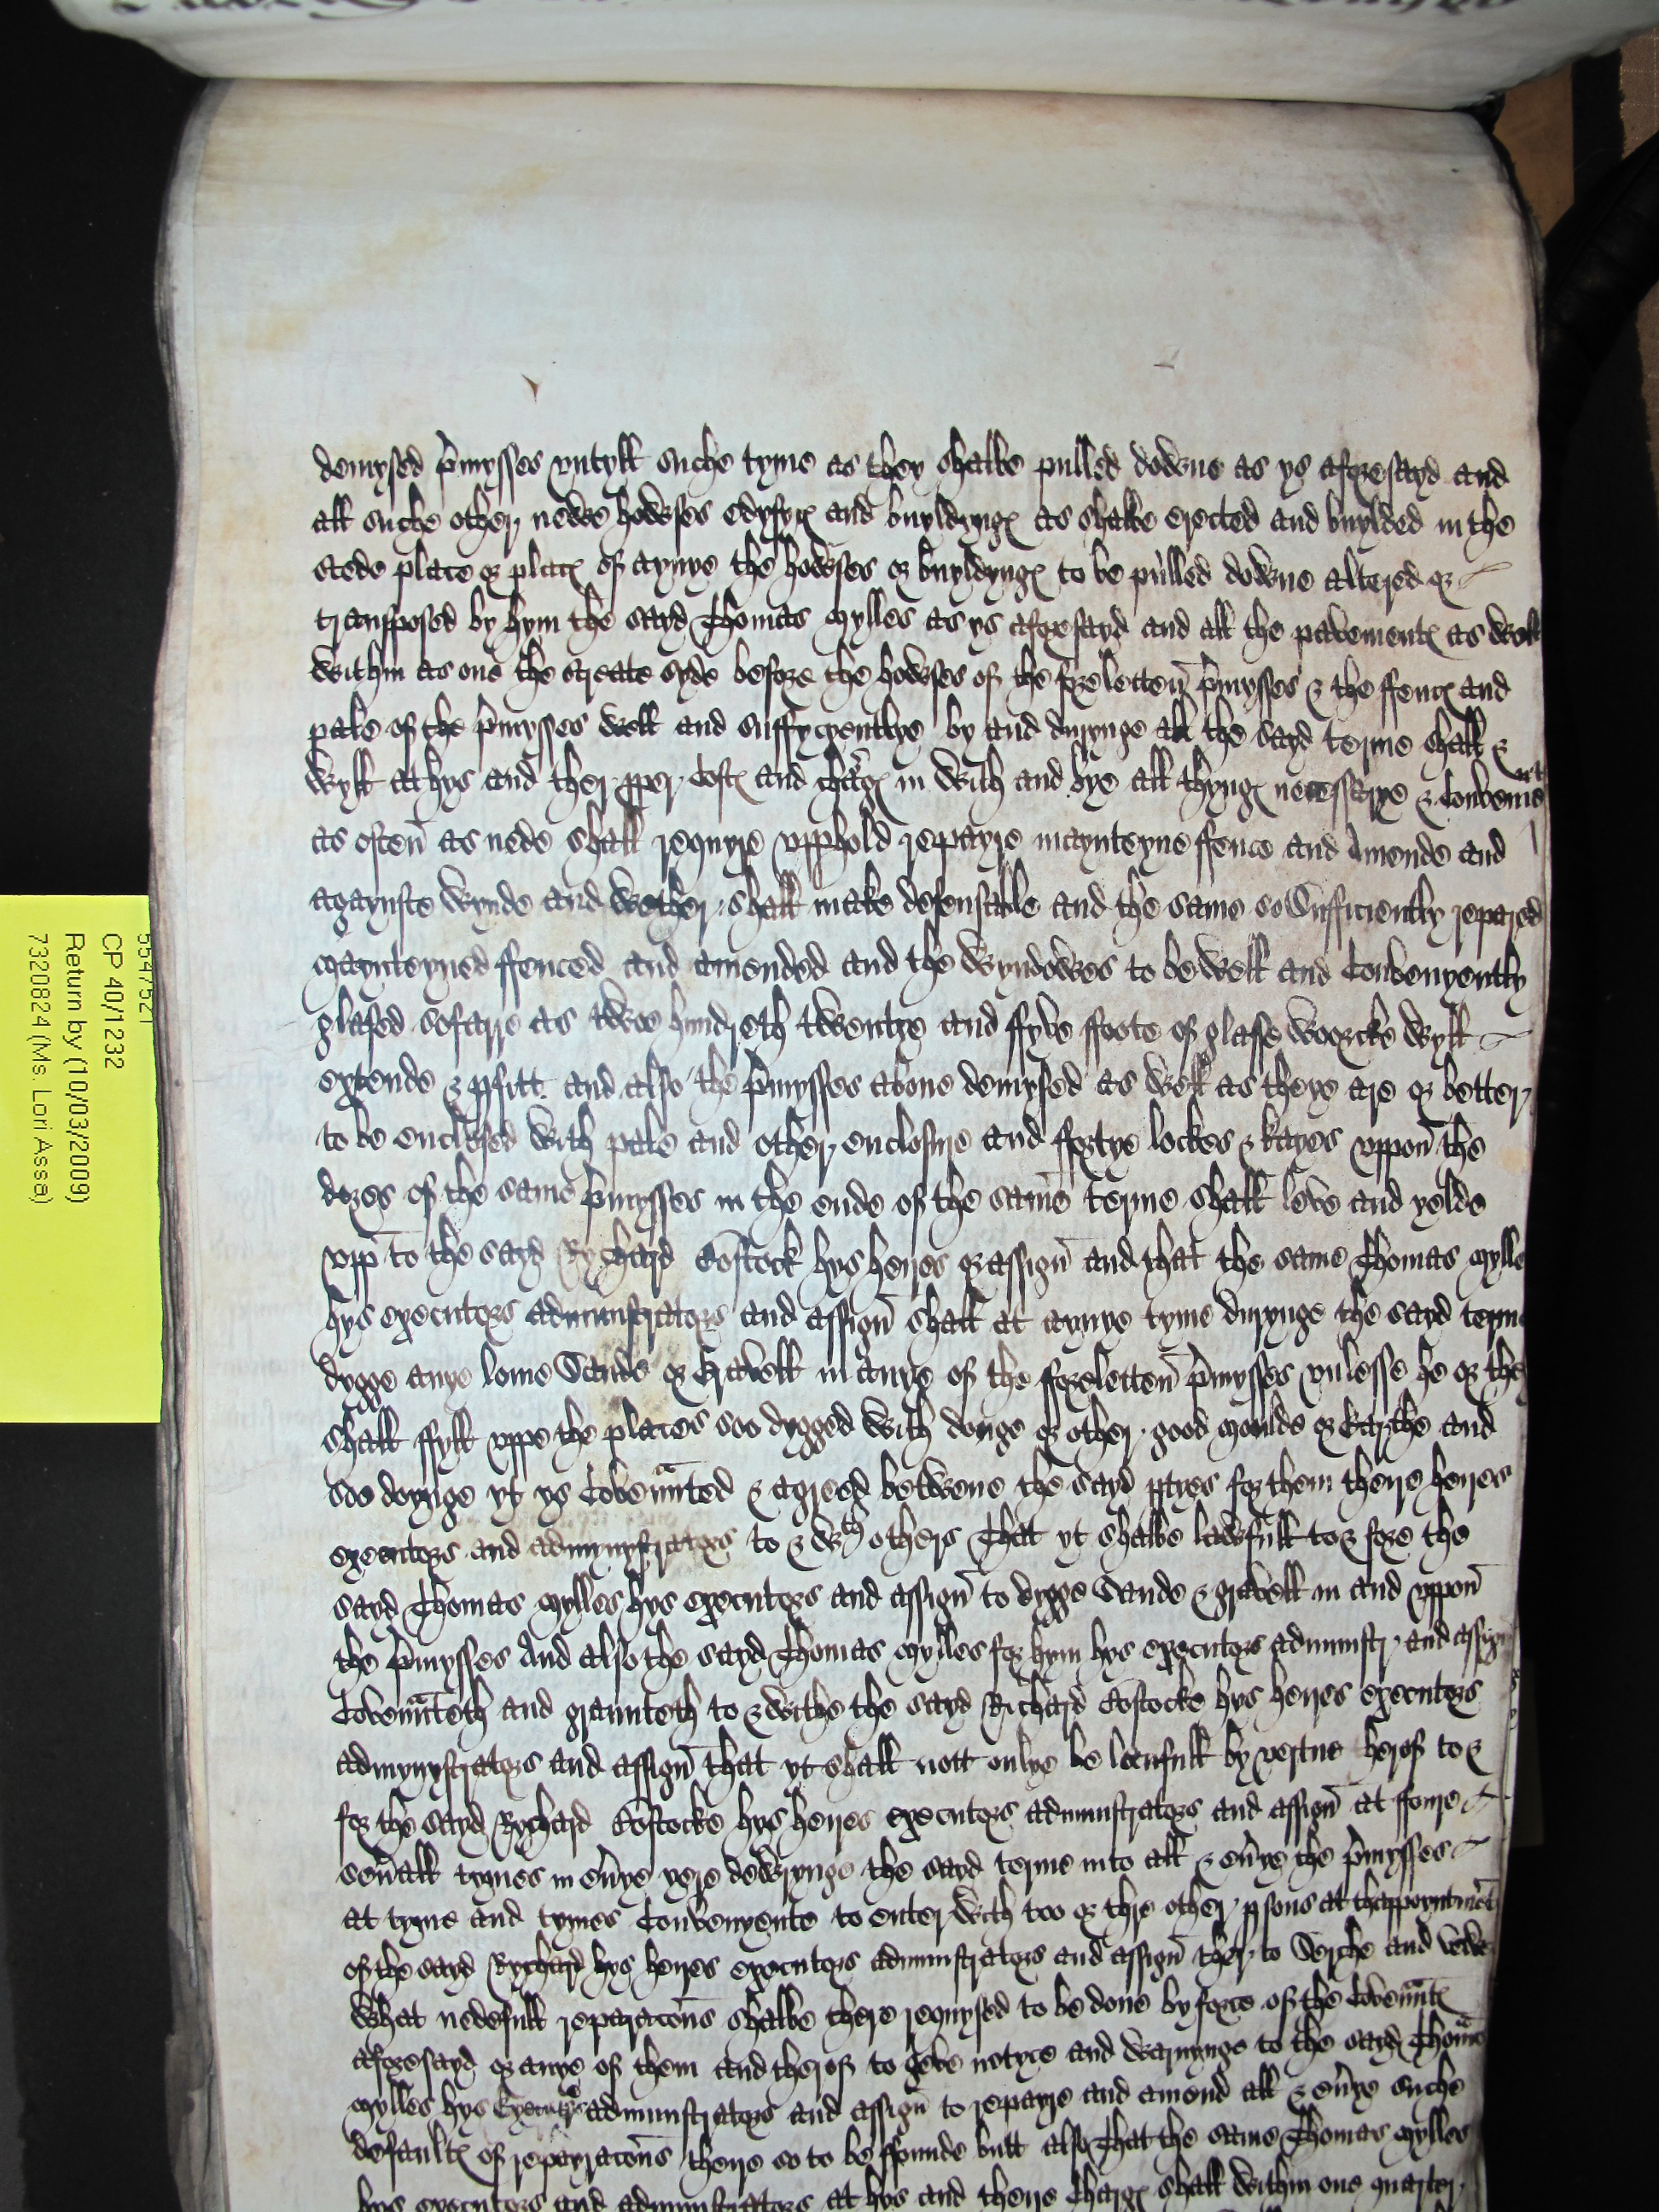 demysed p̄mysses vntyll suche tyme as they shalbe pulled downe as ys aforesayd and
all suche other newe howses edyfyꝭ and buyldyngꝭ as shalbe erected and buylded in the
stede place or placꝭ of aynye the howses or buyldyngꝭ to be pulled downe altered or
transposed by hym the sayd Thomas Mylles as ys aforesayd and all the pavementꝭ as well
within as one the streate syde before the howses of the foreletten̄ p̄mysses & the ffencꝭ and
pale of the p̄mysses well and suffycyentlye by and durynge all the sayd terme shall &
wyll at hys and ther ꝓper costꝭ and chargꝭ in with and bye all thyngꝭ necessarye & convenient
as often̄ as nede shall requyre vpphold repayre maynteyne ffence and Amende and
agaynste wynde and wether shall make defensable and the same so Sufficiently repared
Maynteyned ffenced and amended and the wyndowes to be well and Convenyently
glased sofarre as twoo hundreth twentye and ffyve ffoote of glasse woorcke wyll
extende & ꝑfitt and also the p̄mysses above demysed as well as theye are or better
to be enclosed with pale and other enclosure and ffortye lockes & kayes vppon̄ the
dores of the same p̄mysses in the ende of the same terme shall leve and yelde
vpp to the sayd Rychard Costock hys heyres or assign̄ and that the same Thomas Mylle
hys executors administrators and assign̄ shall at aynye tyme durynge the sayd terme
dygge anye lome Sande or Gravell in anye of the fforeletten̄ p̄mysses vnlesse he or they
shall ffyll vppe the places soo dygged with donge or other good Moulde or Earthe and
soo doynge yt ys Covenn̄ted & agreed betwene the sayd ꝑtyes for them theire heyres
executors and admynystrators to & wth others That yt shalbe lawfull to & fore the
sayd Thomas Mylles hys executors and assign̄ to dygge Sande & gravell in and vppon̄
the p̄mysses And also the sayd Thomas Mylles for hym hys executors administr and assign̄
Covenn̄teth and graunteth to & withe the sayd Richard Costocke hys heyres executors
admynystrators and assign̄ that yt shall nott onlye be leeufull by vertue herof to &
for the sayd Rychard Costocke hys heyres executors administrators and assign̄ at ffoure
sev̄all tymes in ev̄ye yere dowrynge the sayd terme into all & ev̄ye the p̄mysses
at tyme and tymes Convenyente to enter with too or thre other ꝑsons at thappoyntmēt
of the sayd Rychard hys heyres executors administrators and assign̄ ther to Serche and vewe
what nedefull repara͠cons shalbe there requysed to be done by force of the Covenn̄tꝭ
aforesayd or anye of them and therof to geve notyce and warnynge to the sayd Thom̄s
Mylles hys Executors administrators and assign̄ to repayre and amend all & ev̄ye suche
defaultꝭ of repayra͠cons theire so to be ffounde butt also That the same Thomas Mylles
hys executors and administrators at hys and theire Chargꝭ shall within one quarter
5547521
CP 40/1232
Return by (10/03/2009)
7320824 (Ms. Lori Assa)